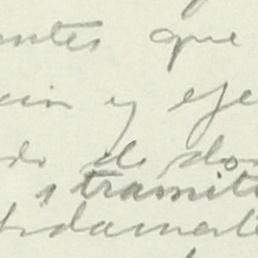 antes que
ción y eje
do de don
s tramit
rdamente